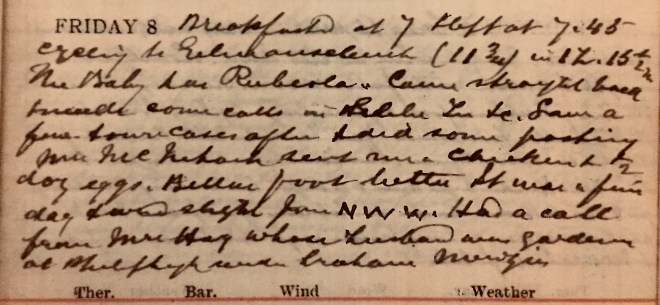 FRIDAY 8 Breakfasted at 7 & left at 7.45
cycling to Gilmanscleuch (11 3/4) in 1 h. 15
The Baby has Rubeola. Came straight back
made some calls in & Sam a
few town cases after & did some posting
Mrs sent me a chicken & 1/2
doz eggs. Bella's foot better It was a fine
day & wind slight from N W W. Had a call
from Mrs Hay whose husband was gardener
at Philiphaugh under Graham
Ther. Bar. Wind Weather